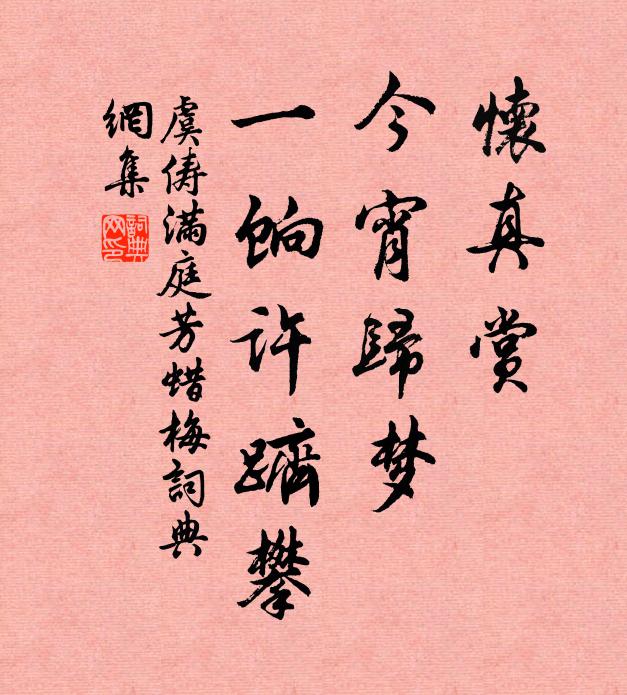 懷真賞
今宵歸梦
一餉許躋攀
虞俦滿庭芳蜡梅詞典
網集
詞典網印